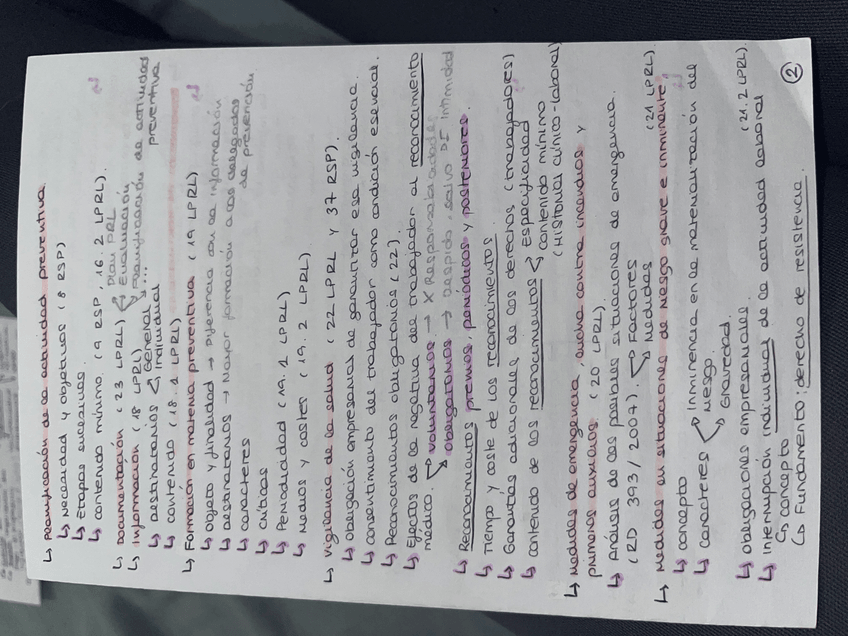 ↳ Planificación de la actividad preventiva.
↳ Necesidad y objetivos (8 RSP)
↳ Etapas sucesivas.
↳ contenido mínimo. (9 RSP, 16.2 LPRL).
↳ Documentación (23 LPRL) Plan PRL
Evaluación
Planificación de actividad preventiva
...
↳ Información (18 LPRL)
↳ Destinatarios General
Individual
↳ contenido (18.1 LPRL)
↳ Formación en materia preventiva (19 LPRL)
↳ objeto y finalidad → Diferencia con la información
↳ Destinatarios → Mayor formación a los delegados de prevención
↳ caracteres
↳ críticas
↳ Periodicidad (19.1 LPRL)
↳ Medios y costes (19.2 LPRL)
↳ Vigilancia de la salud (22 LPRL y 37 RSP).
↳ obligación empresarial de garantizar esa vigilancia.
↳ consentimiento del trabajador como condición esencial.
↳ Reconocimientos obligatorios (22).
↳ Efectos de la negativa del trabajador al reconocimiento
médico. voluntarios → X Responsabilidades
obligatorios → despido, salvo intimidad
↳ Reconocimientos previos, periódicos y posteriores.
↳ Tiempo y coste de los reconocimientos.
↳ Garantías adicionales de los derechos (trabajadores)
↳ contenido de los reconocimientos Especificidad
contenido mínimo
(Historial clínico-laboral)
↳ Medidas de emergencia, lucha contra incendios y
primeros auxilios (20 LPRL).
↳ Análisis de las posibles situaciones de emergencia.
(RD 393/2007). Factores
Medidas
↳ Medidas en situaciones de riesgo grave e inminente. (21 LPRL)
↳ concepto
↳ caracteres Inminencia en la materialización del
riesgo.
Gravedad
↳ obligaciones empresariales.
↳ Interrupción individual de la actividad laboral (21.2 LPRL).
↳ concepto
↳ Fundamento: derecho de resistencia.
②